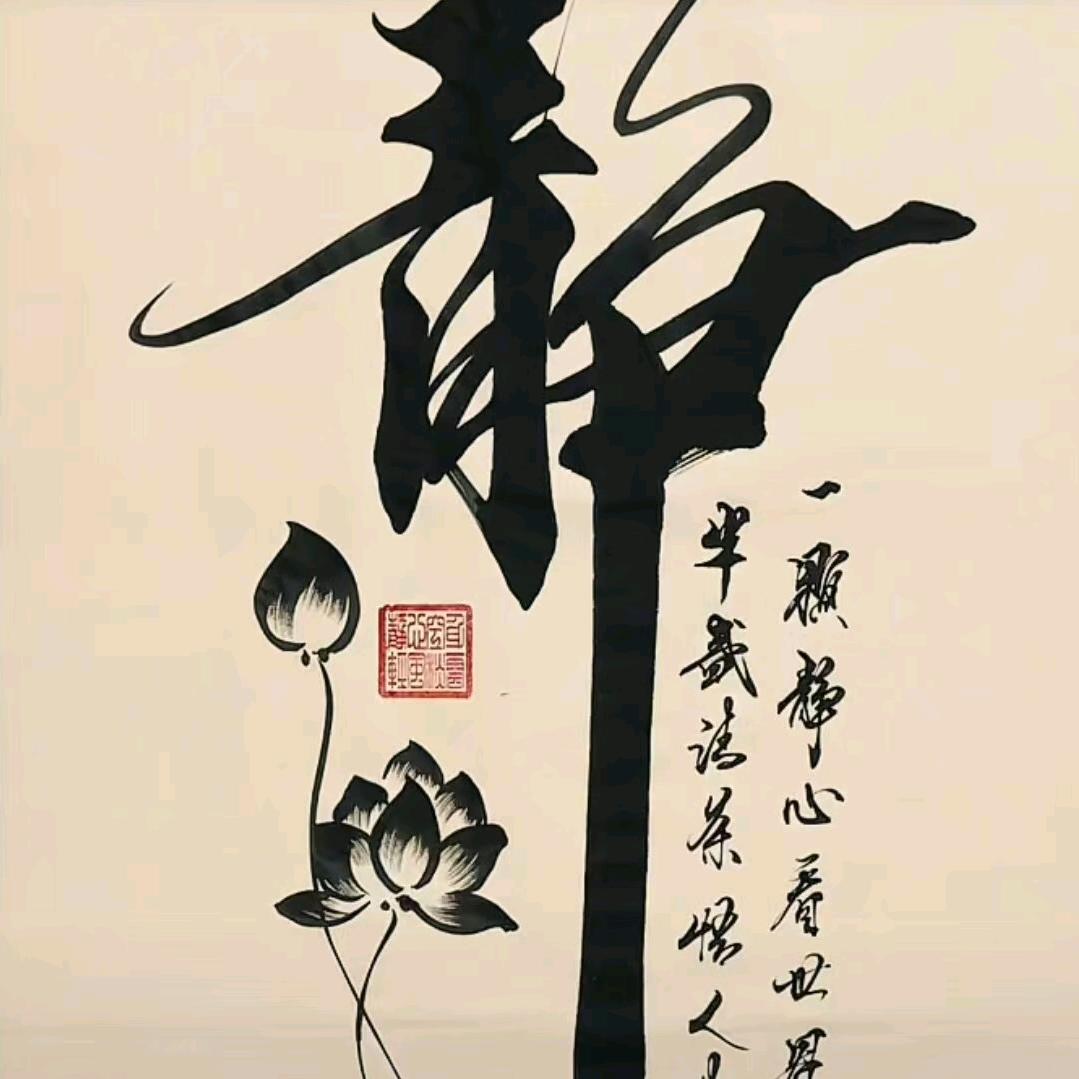 静
一顆静心看世界
半盏清茶悟人